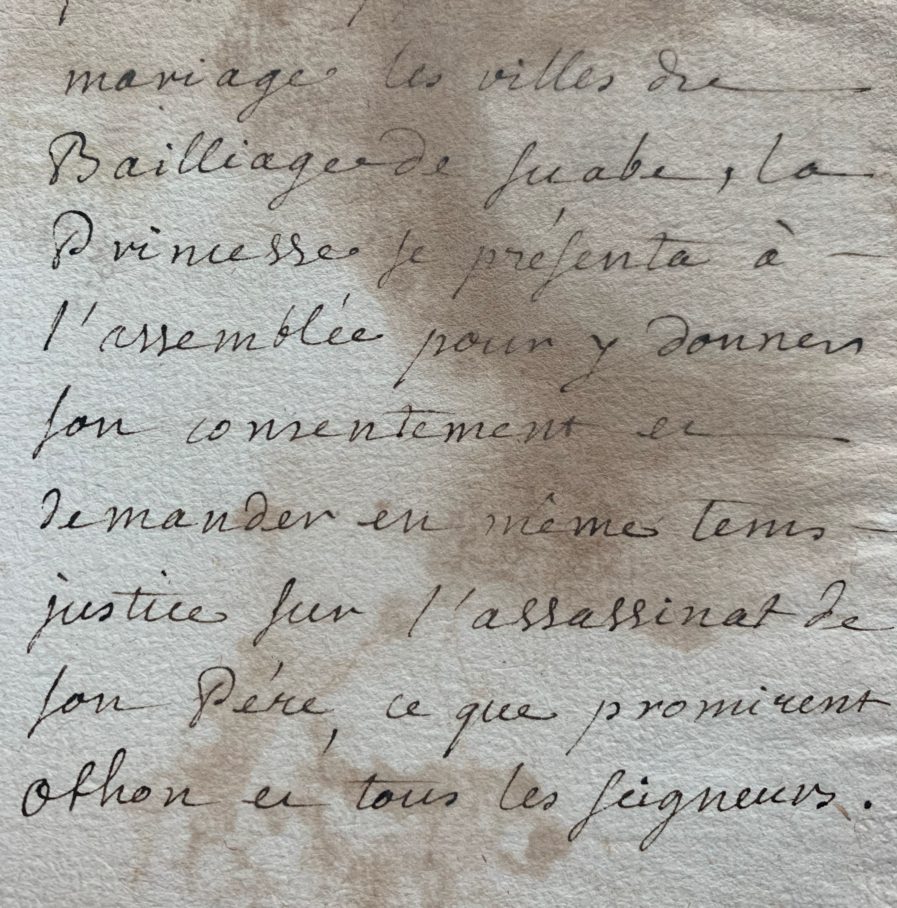 mariage les villes du
Bailliage de Suabe, la
Princesse se présenta à
l'assemblée pour y donner
son consentement et
demander en même tems
justice sur l'assassinat de
son Pére, ce que promirent
Othon et tous les seigneurs.